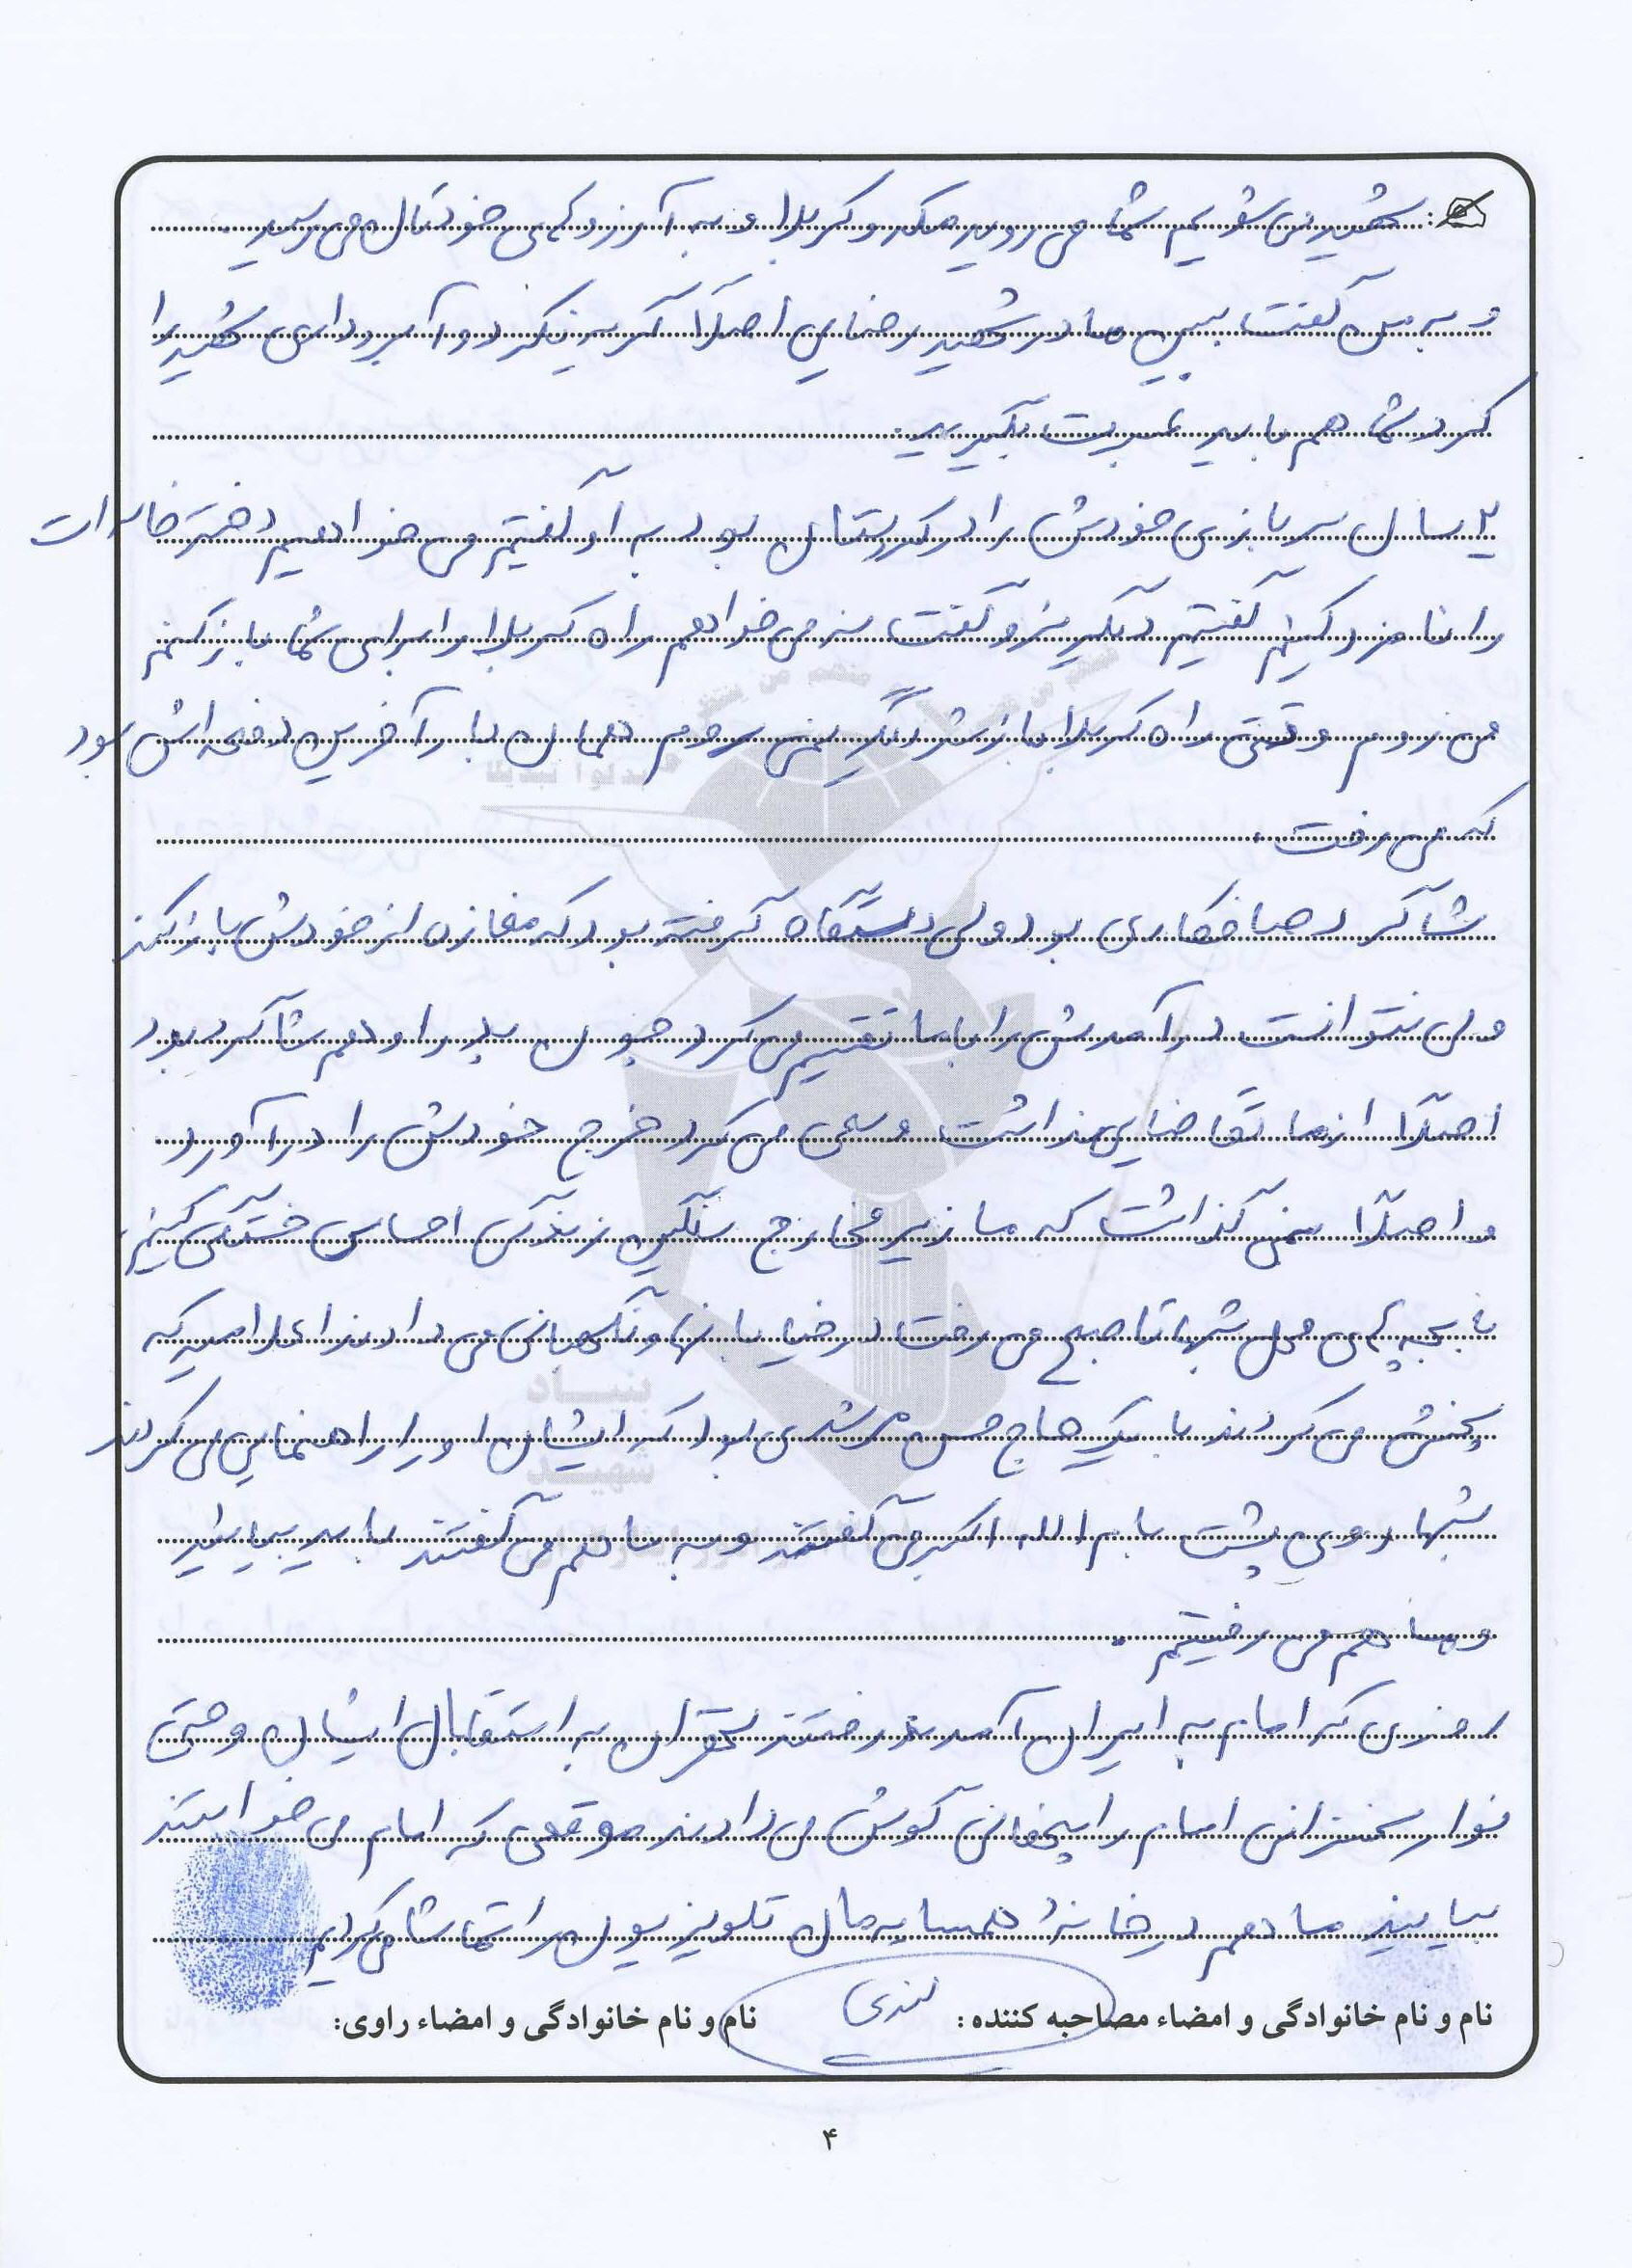 شهید می شویم شما می روید مکه و کربلا و به آرزوهای خودتان می رسید.
و به من گفت ببین مادر شهید رضایی اصلاً گریه نکرد و آبروداری شهید را
کرد شما هم باید عبرت بگیرید.
یک سال سربازی خودش را در کردستان بود به او گفتیم می خواهیم دختر خاله ات
را نامزد کنیم گفتیم دیگر نرو گفت نه می خواهم راه کربلا را برای شما باز کنم
من نروم وقتی راه کربلا باز شد دیگر نمی روم همان بار آخرین دفعه اش بود
که می رفت.
شاگرد صافکاری بود ولی دستگاه گرفته بود که مغازه از خودش باز کند
ولی نتوانست درآمدش را با ما تقسیم می کرد چون پدر او هم شاگرد بود
اصلاً از ما تقاضایی نداشت و سعی می کرد خرج خودش را درآورد
و اصلاً نمی گذاشت که ما زیر مخارج سنگین زندگی احساس خستگی کنیم.
با بچه های محل شبها تا صبح می رفت در خیابانها و نگهبانی می دادند اعلامیه که
پخش می کردند با یک حاج حسن مرشدی بود که ایشان او را راهنمایی می کردند
شبها روی پشت بام الله اکبر می گفتند و به ما هم می گفتند باید بیایید
و ما هم می رفتیم.
روزی که امام به ایران آمدند رفتند تهران به استقبال ایشان و حتی
نوار سخنرانی امام را پنهانی گوش می دادند موقعی که امام می خواستند
بیایند ما هم در خانهٔ همسایه مان تلویزیون را تماشا می کردیم
نام و نام خانوادگی و امضاء مصاحبه کننده: نام و نام خانوادگی و امضاء راوی:
۴
بنیاد
شهید